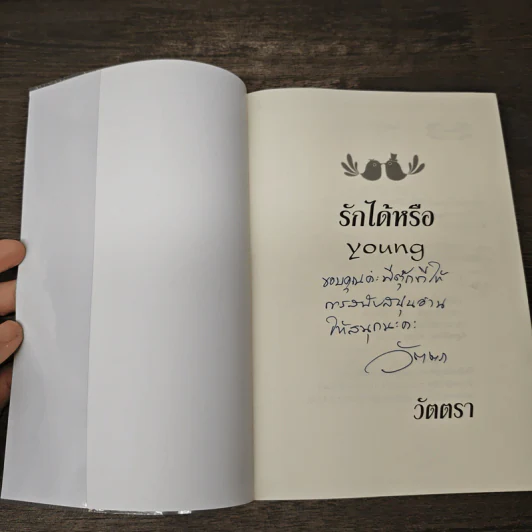 รักได้หรือ
young
ขอบคุณค่ะ พี่ตุ๊กที่ให้
การสนับสนุนอ่าน
ให้สนุกนะคะ
วัตตรา
วัตตรา